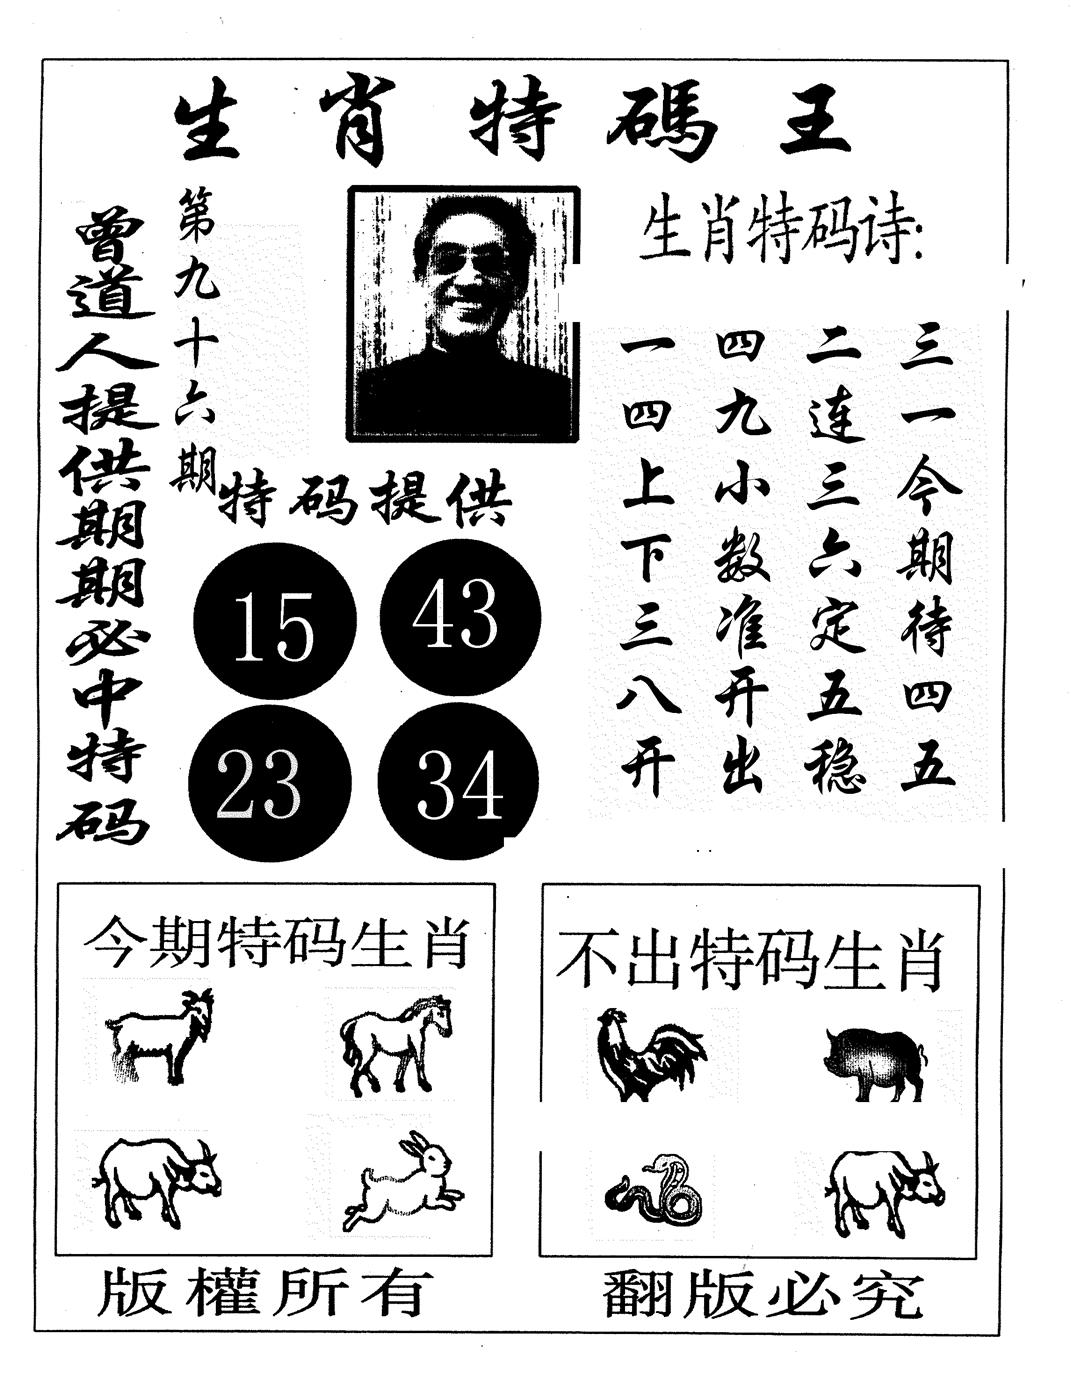 生肖特碼王
曾道人提供期期必中特码
第九十六期
特码提供
15 43
23 34
生肖特码诗:
三一今期待四五
二连三六定五稳
四九小数准开出
一四上下三八开
今期特码生肖
不出特码生肖
版權所有
翻版必究